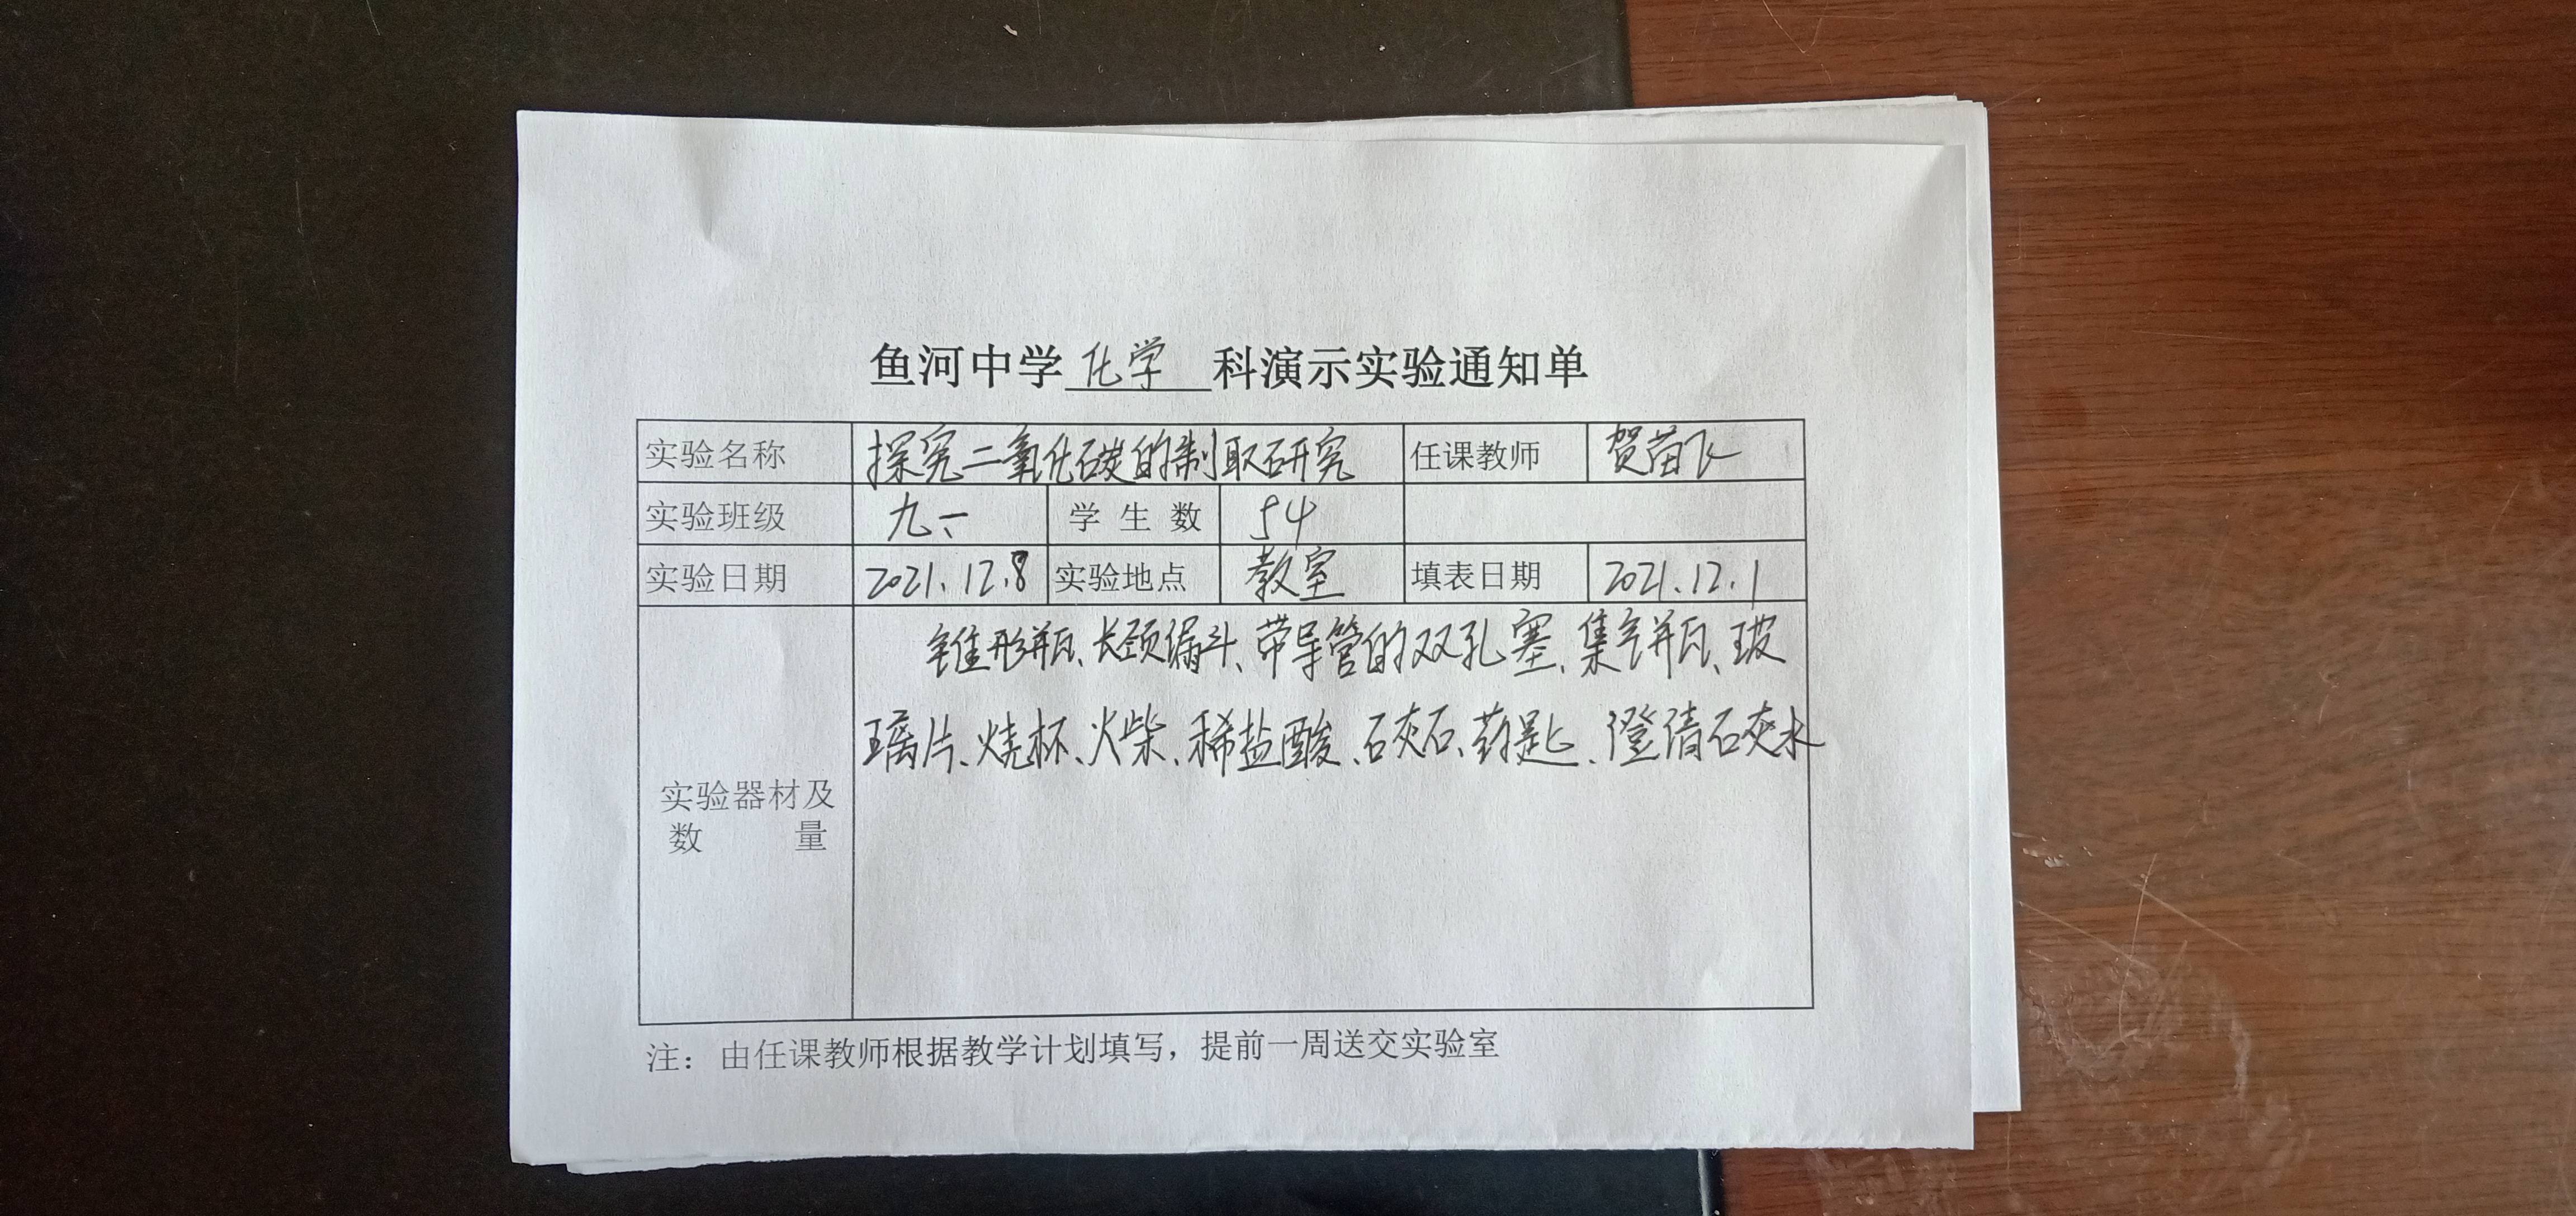 鱼河中学 化学 科演示实验通知单
实验名称 探究二氧化碳的制取研究 任课教师 贺苗飞
实验班级 九、一 学生数 54
实验日期 2021.12.8 实验地点 教室 填表日期 2021.12.1
锥形瓶、长颈漏斗、带导管的双孔塞、集气瓶、玻
璃片、烧杯、火柴、稀盐酸、石灰石、药匙、澄清石灰水
实验器材及
数 量
注： 由任课教师根据教学计划填写，提前一周送交实验室